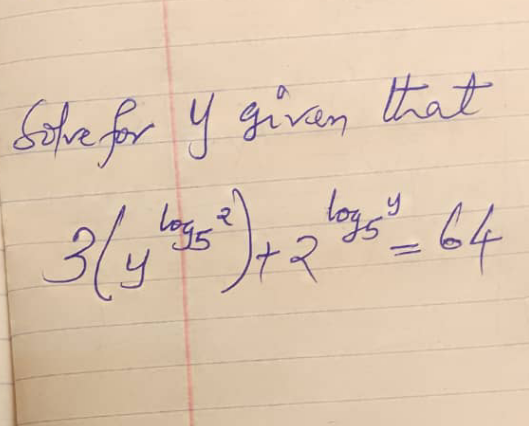 Solve for y given that
3(y^{log_5 2}) + 2^{log_5 y} = 64